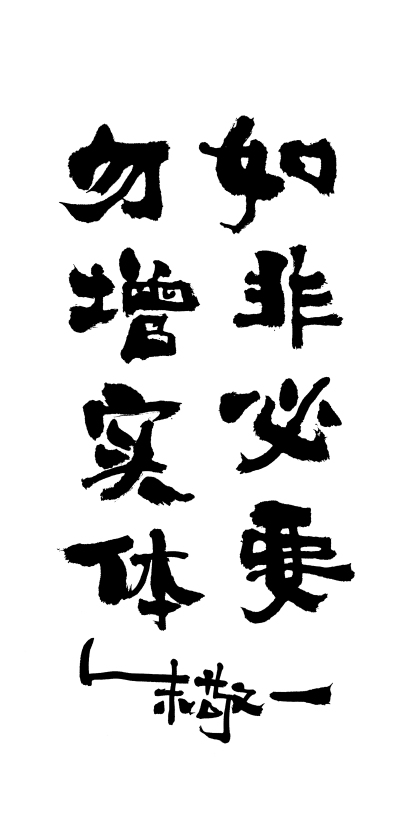 如非必要
勿增实体